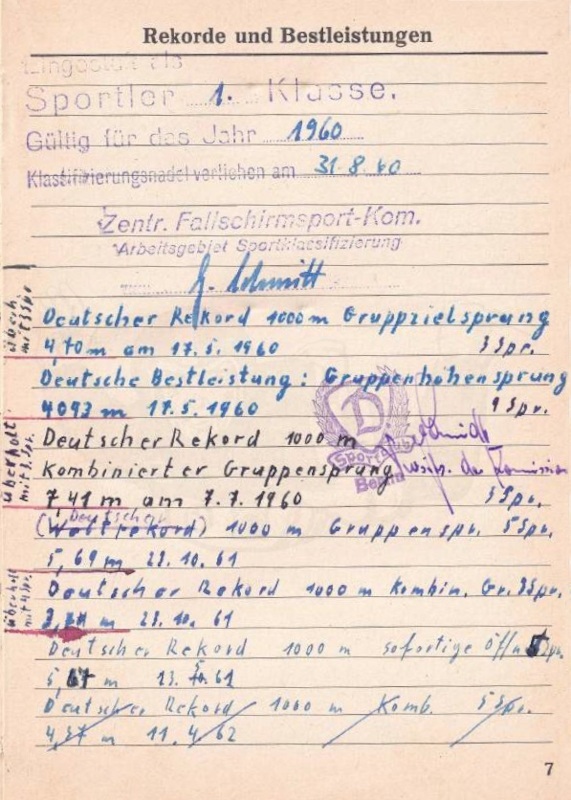 Rekorde und Bestleistungen
Eingestuft als
Sportler 1. Klasse.
Gültig für das Jahr 1960
Klassifizierungsnadel verliehen am 31.8.60
Zentr. Fallschirmsport-Kom.
Arbeitsgebiet Sportklassifizierung
Schmitt
Deutscher Rekord 1000 m Gruppzielsprung
4,70 m am 17.5.1960 3 Spr.
Deutsche Bestleistung: Gruppenhöhensprung
4093 m 17.5.1960 9 Spr.
Deutscher Rekord 1000 m
kombinierter Gruppensprung
7,41 m am 7.7.1960 3 Spr.
Deutscher
(Weltrekord) 1000 m Gruppenspr. 5 Spr.
5,69 m 23.10.61
Deutscher Rekord 1000 m Kombin. Gr. 3 Spr.
m 23.10.61
Deutscher Rekord 1000 m sofortige Öffn
5,67 m 61
Deutscher Rekord 1000 m Komb. 5 Spr.
4,37 m 11.4.62
überholt
mit 3 Spr.
überholt
mit 4 Spr.
D
Sport
Berlin
7